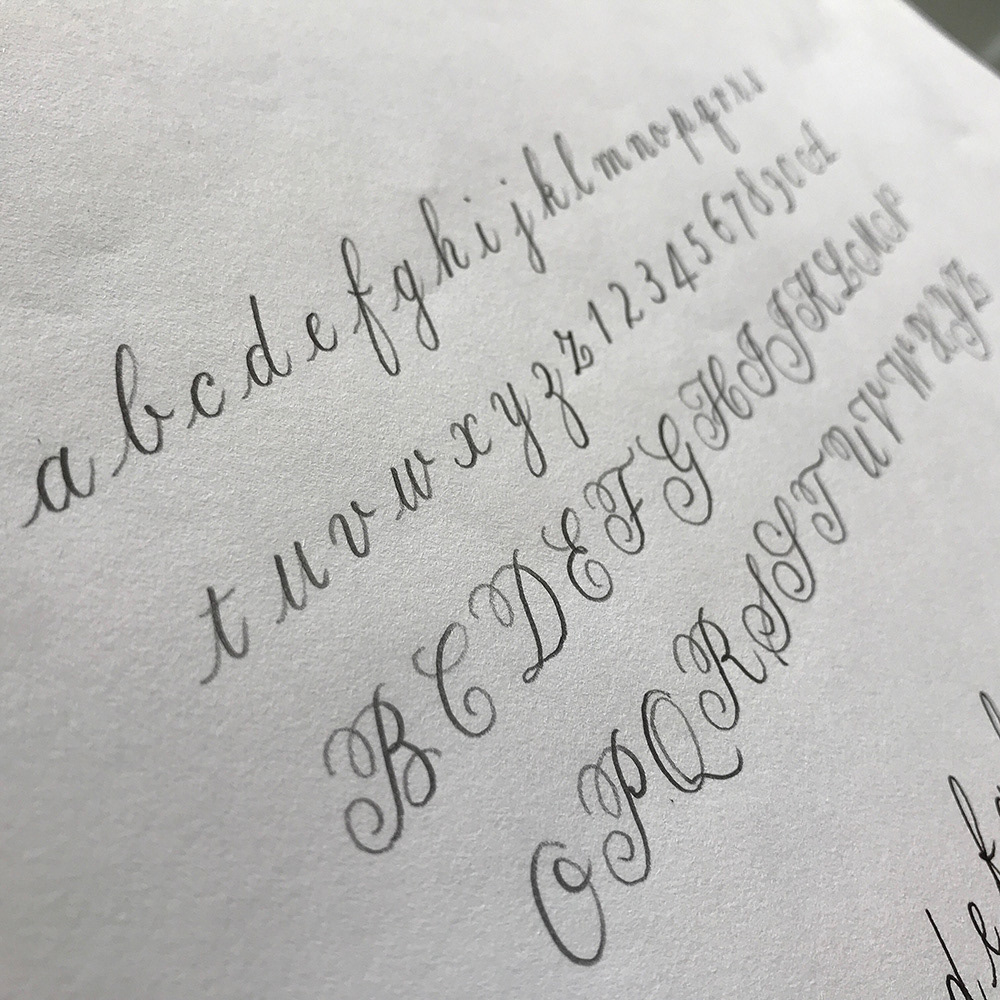 a b c d e f g h i j k l m n o p q r s
t u v w x y z z 1 2 3 4 5 6 7 8 9 0 A
B C D E F G H I J K L M N
O P Q R S S T U V W X Y Z
d e f